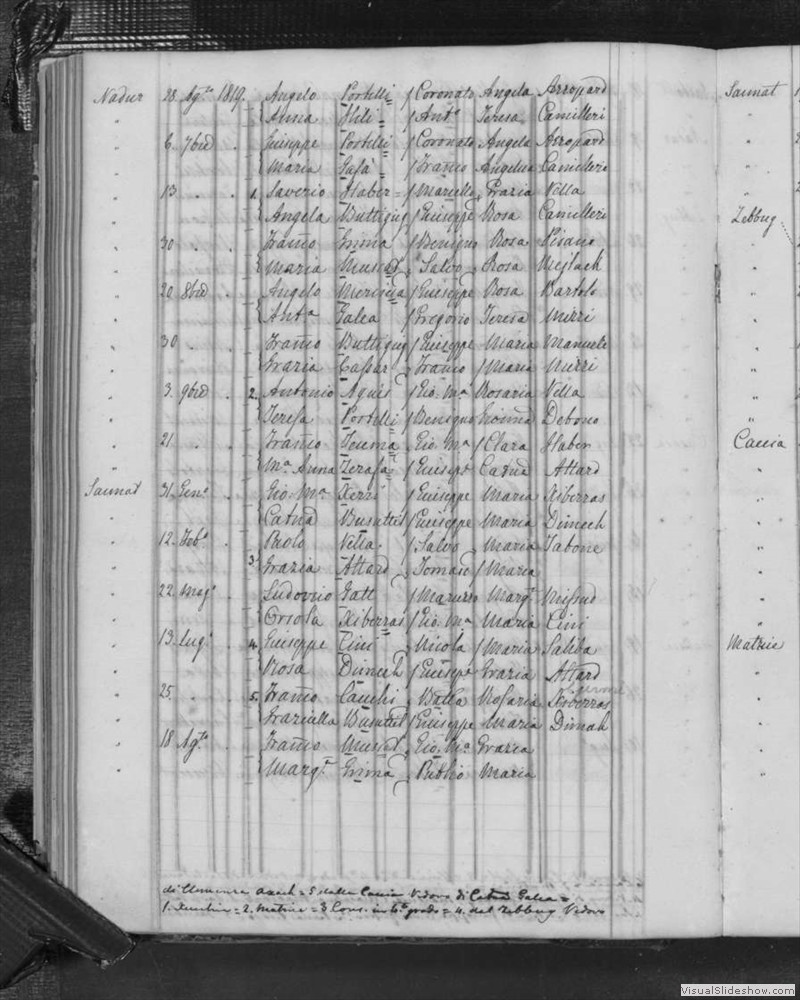 Nadur 28 Agto 1819. Angelo Portelli Coronato Angela Azzopard
Anna Anto Teresa Camilleri
6 7bre Giuseppe Portelli Coronato Angela Azzopard
Maria Franco Angelica Camilleri
13 1. Saverio Haber Marcello Grazia Vella
Angela Buttigieg Giuseppe Rosa Camilleri
30 Franco Grima Benigno Rosa Pisano
Maria Muscat Salvo Rosa Mejlack
20 8bre Angelo Mercieca Giuseppe Rosa Bartolo
Anta Galea Gregorio Teresa Mizzi
30 Franco Buttigieg Giuseppe Maria Manuele
Grazia Cassar Franco Maria Mizzi
3. 9bre 2. Antonio Agius Gio. Ma Rosaria Vella
Teresa Portelli Benigno Debono
21 Franco Teuma Gio. Ma Clara Haber
Ma Anna Zerafa Giusepe Catna Attard
Sannat 31. Geno Gio. Ma Xerri Giuseppe Maria Xiberras
Catna Busuttil Giuseppe Maria Dimech
12. Febo Paolo Vella Salvo Maria Tabone
3. Grazia Attard Tomaso Maria
22. Mago Ludovico Gatt Maruzzo Margta Mifsud
Orsola Xiberras Gio. Ma Maria Cini
13. Lugo 4. Giuseppe Cini Nicola Maria Saliba
Rosa Dimech Giusepe Grazia Attard
25. 5. Franco Cauchi Batta Rosaria Xiberras
Graziulla Busuttil Giuseppe Maria Dimech
18 Agto Franco Muscat Gio. Ma Grazia
Margta Grima Publio Maria
di Clemenza Axach = 5 della Caccia Vedovo di Catna Galea =
2. Matrice = 3 Cons. in 4o grado = 4. del Zebbug Vedovo
Sannat
Zebbug
Caccia
Matrice
VisualSlideshow.com